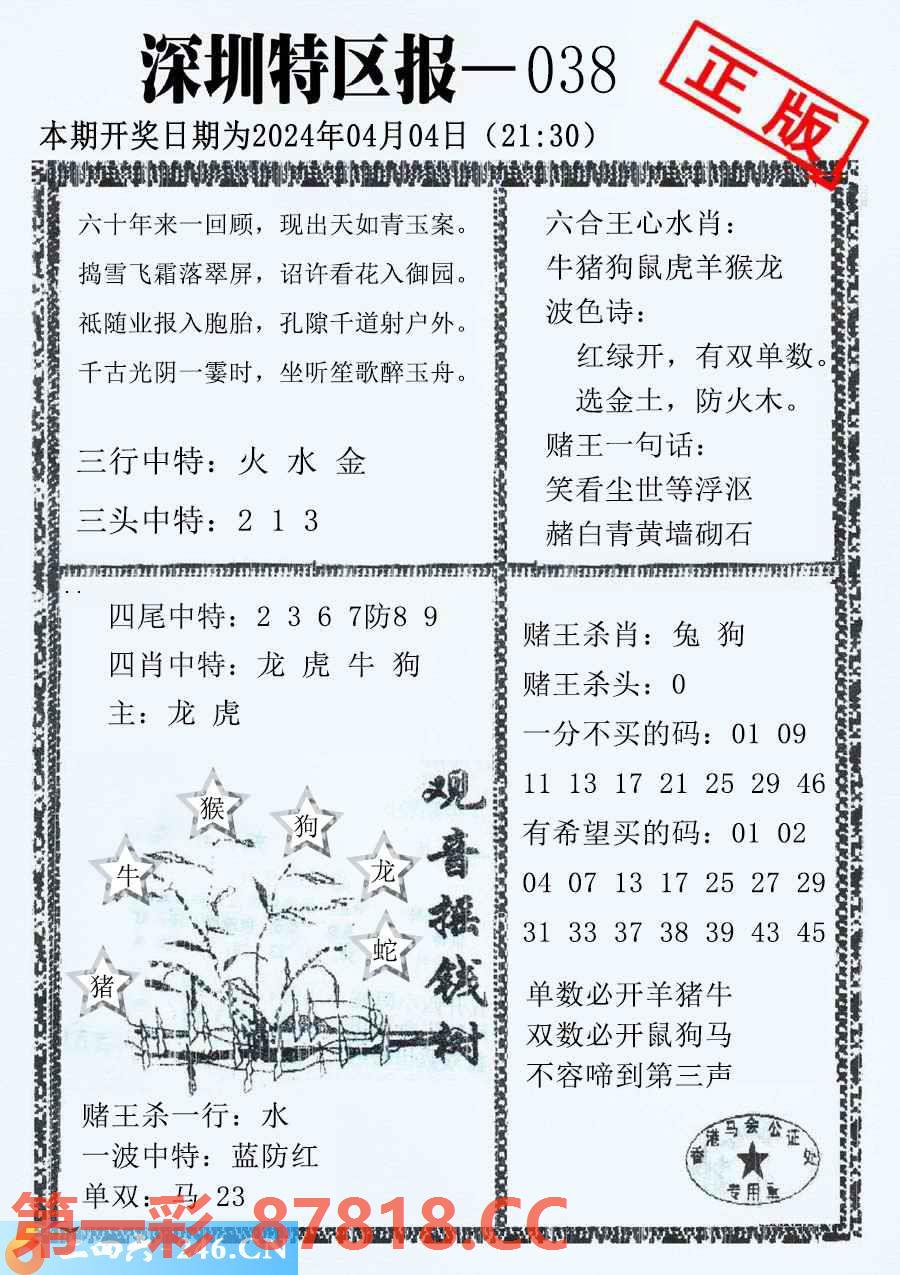 深圳特区报—038
正版
本期开奖日期为2024年04月04日（21:30）
六十年来一回顾，现出天如青玉案。
捣雪飞霜落翠屏，诏许看花入御园。
祗随业报入胞胎，孔隙千道射户外。
千古光阴一霎时，坐听笙歌醉玉舟。
三行中特：火 水 金
三头中特：2 1 3
六合王心水肖：
牛猪狗鼠虎羊猴龙
波色诗：
红绿开，有双单数。
选金土，防火木。
赌王一句话：
笑看尘世等浮沤
赭白青黄墙砌石
四尾中特：2 3 6 7防8 9
四肖中特：龙 虎 牛 狗
主：龙 虎
猴
狗
牛
龙
蛇
猪
观音摇钱树
赌王杀一行：水
一波中特：蓝防红
单双：马 23
赌王杀肖：兔 狗
赌王杀头：0
一分不买的码：01 09
11 13 17 21 25 29 46
有希望买的码：01 02
04 07 13 17 25 27 29
31 33 37 38 39 43 45
单数必开羊猪牛
双数必开鼠狗马
不容啼到第三声
香港马会公证处
专用章
第一彩 87818.CC
246.CN